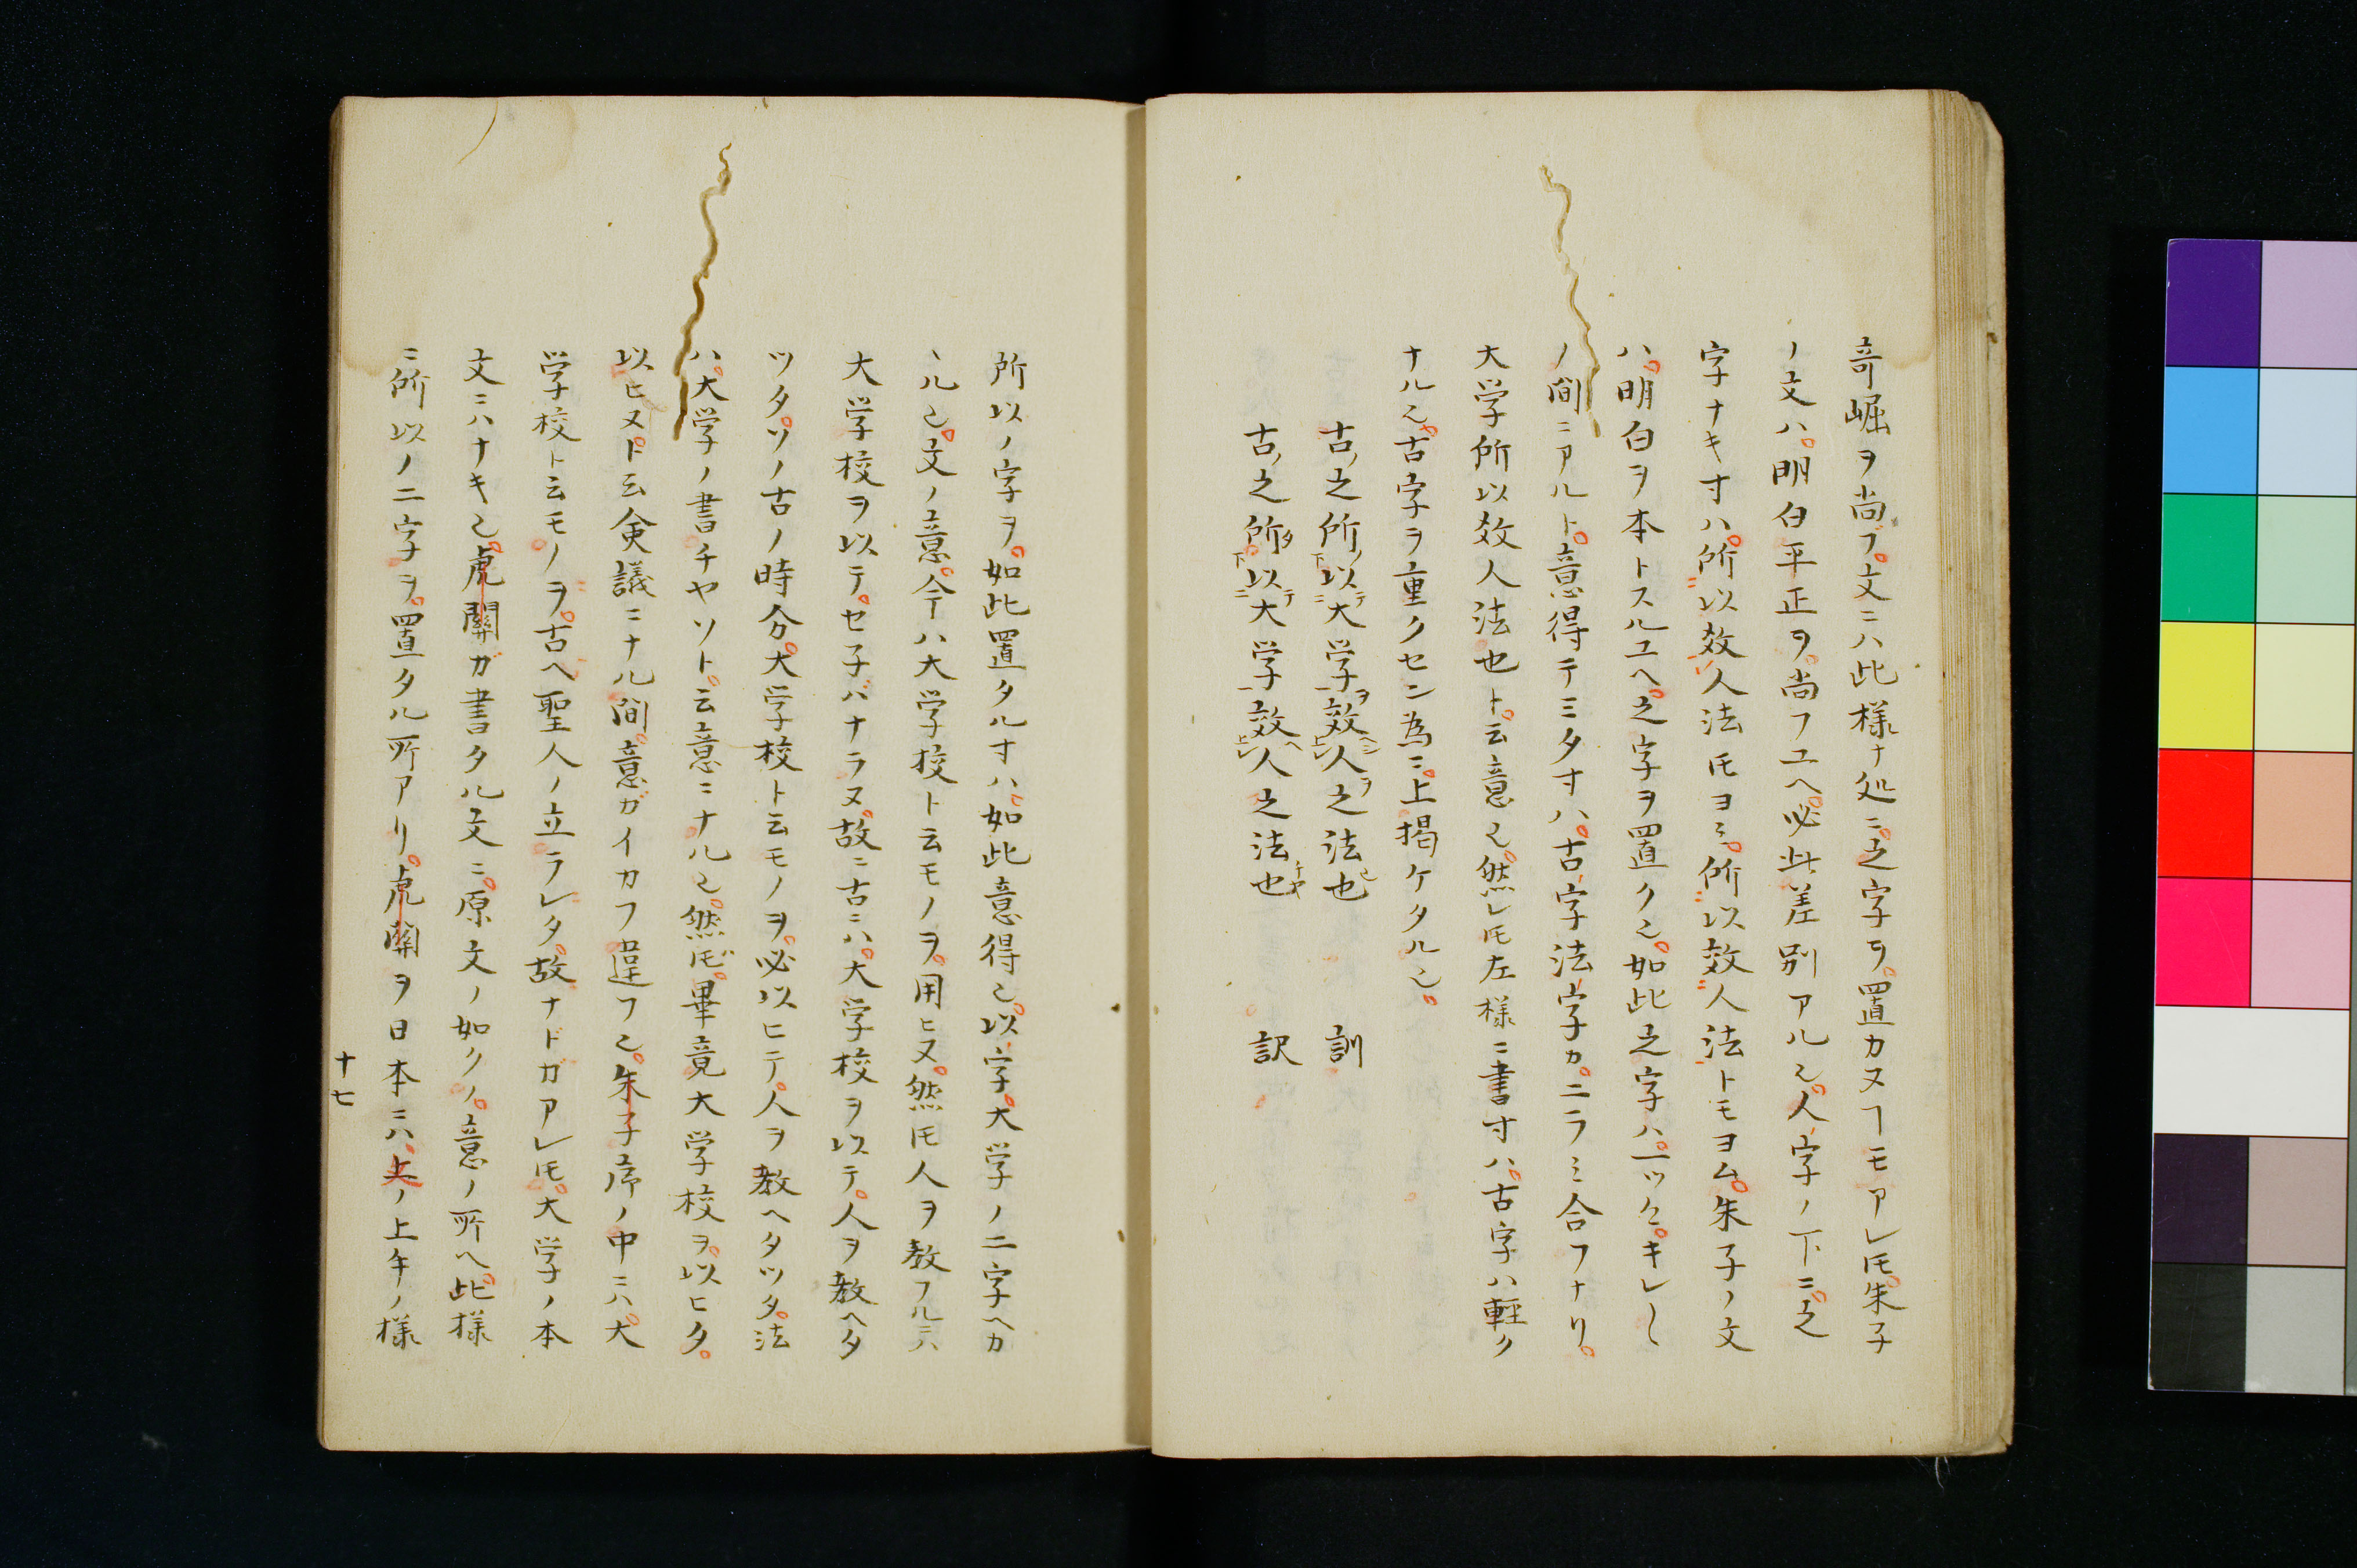 奇崛ヲ尚ブ。文ニハ此様ナ処ニ。之字ヲ。置カヌヿモアレ𪜈。朱子
ノ文ハ。明白平正ヲ。尚フユヘ。必此差別アル也。人字ノ下ニ。之
字ナキ寸ハ。所以效人法𪜈ヨミ。所以效人法トモヨム。朱子ノ文
ハ。明白ヲ本トスルユヘ。之字ヲ置ク也。如此之字ハ。一ツケ。キレ〳〵
ノ間ニアルト。意得テミタ寸ハ。古字法字カ。ニラミ合フナリ。
大学所以效人法也ト。云意也。然レ𪜈左様ニ書寸ハ。古字ハ軽ク
ナル也。古字ヲ重クセン為ニ。上掲ケタル也。
古ノ之所ノ以テ大学ヲ效ヘシ人ヲ之法也 訓
古ノ之所タ以テ大学效ヘ人之法也トヤ 訳
所以ノ字ヲ。如此置タル寸ハ。如此意得也。以字。大学ノ二字ヘカ
ヽル也。文ノ意。今ハ大学校ト云モノヲ。用ヒヌ。然𪜈人ヲ教フルニハ
大学校ヲ以テ。セ子バナラヌ。故ニ古ニハ。大学校ヲ以テ。人ヲ教ヘタ
ツタ。ソノ古ノ時分。大学校ト云モノヲ。必以ヒテ。人ヲ教ヘタツタ。法
ハ。大学ノ書チヤソト。云意ニナル也。然𪜈。畢竟大学校ヲ。以ヒタ。
以ヒヌト。云僉議ニナル間。意ガイカフ違フ也。朱子序ノ中ニハ。大
学校ト云モノヲ。古ヘ聖人ノ立ラレタ。故ナドガアレ𪜈。大学ノ本
文ニハナキ也。虎關ガ書タル文ニ。原文ノ如クノ。意ノ所ヘ。此様
ニ所以ノ二字ヲ。置タル所アリ。虎關ヲ日本ニハ。大ノ上手ノ様
十七